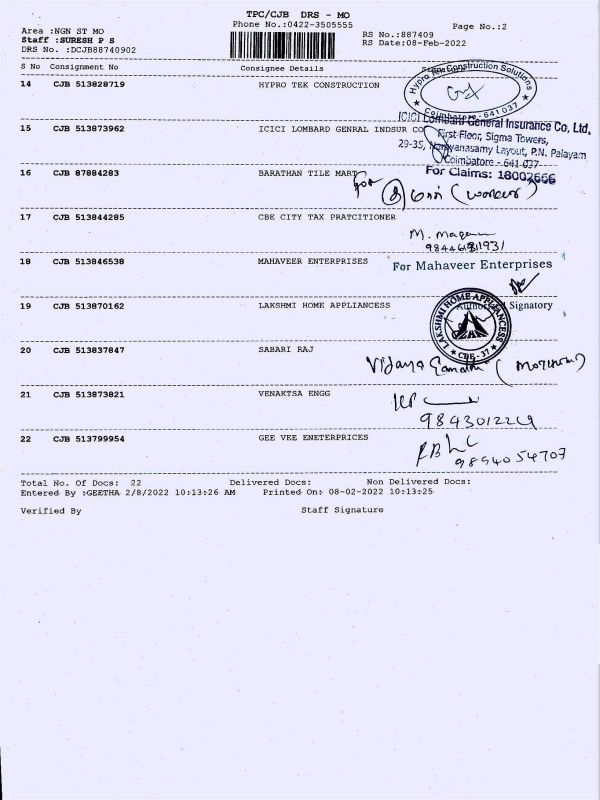 TPC/CJB DRS - MO
Phone No.:0422-3505555
Page No.:2
Area :NGN ST MO
Staff :SURESH P S
DRS No. :DCJB88740902
RS No.:887409
RS Date:08-Feb-2022
S No Consignment No Consignee Details
14 CJB 513828719 HYPRO TEK CONSTRUCTION
Hypro Tek Construction Solutions
Coimbatore - 641 037
15 CJB 513873962 ICICI LOMBARD GENRAL INDSUR CO
ICICI Lombard General Insurance Co, Ltd,
First Floor, Sigma Towers,
29-35, Layout, P.N. Palayam
Coimbatore - 641 037
16 CJB 87884283 BARATHAN TILE MART
For Claims: 18002666
for (worker)
17 CJB 513844285 CBE CITY TAX PRATCITIONER
M.
18 CJB 513846538 MAHAVEER ENTERPRISES
For Mahaveer Enterprises
Authorised Signatory
19 CJB 513870162 LAKSHMI HOME APPLIANCESS
LAKSHMI HOME APPLIANCESS
CBE - 37
20 CJB 513837847 SABARI RAJ
Vijaya Gandhi (Mother)
21 CJB 513873821 VENAKTSA ENGG
9843012229
22 CJB 513799954 GEE VEE ENETERPRICES
9894054707
Total No. Of Docs: 22 Delivered Docs: Non Delivered Docs:
Entered By :GEETHA 2/8/2022 10:13:26 AM Printed On: 08-02-2022 10:13:25
Verified By Staff Signature